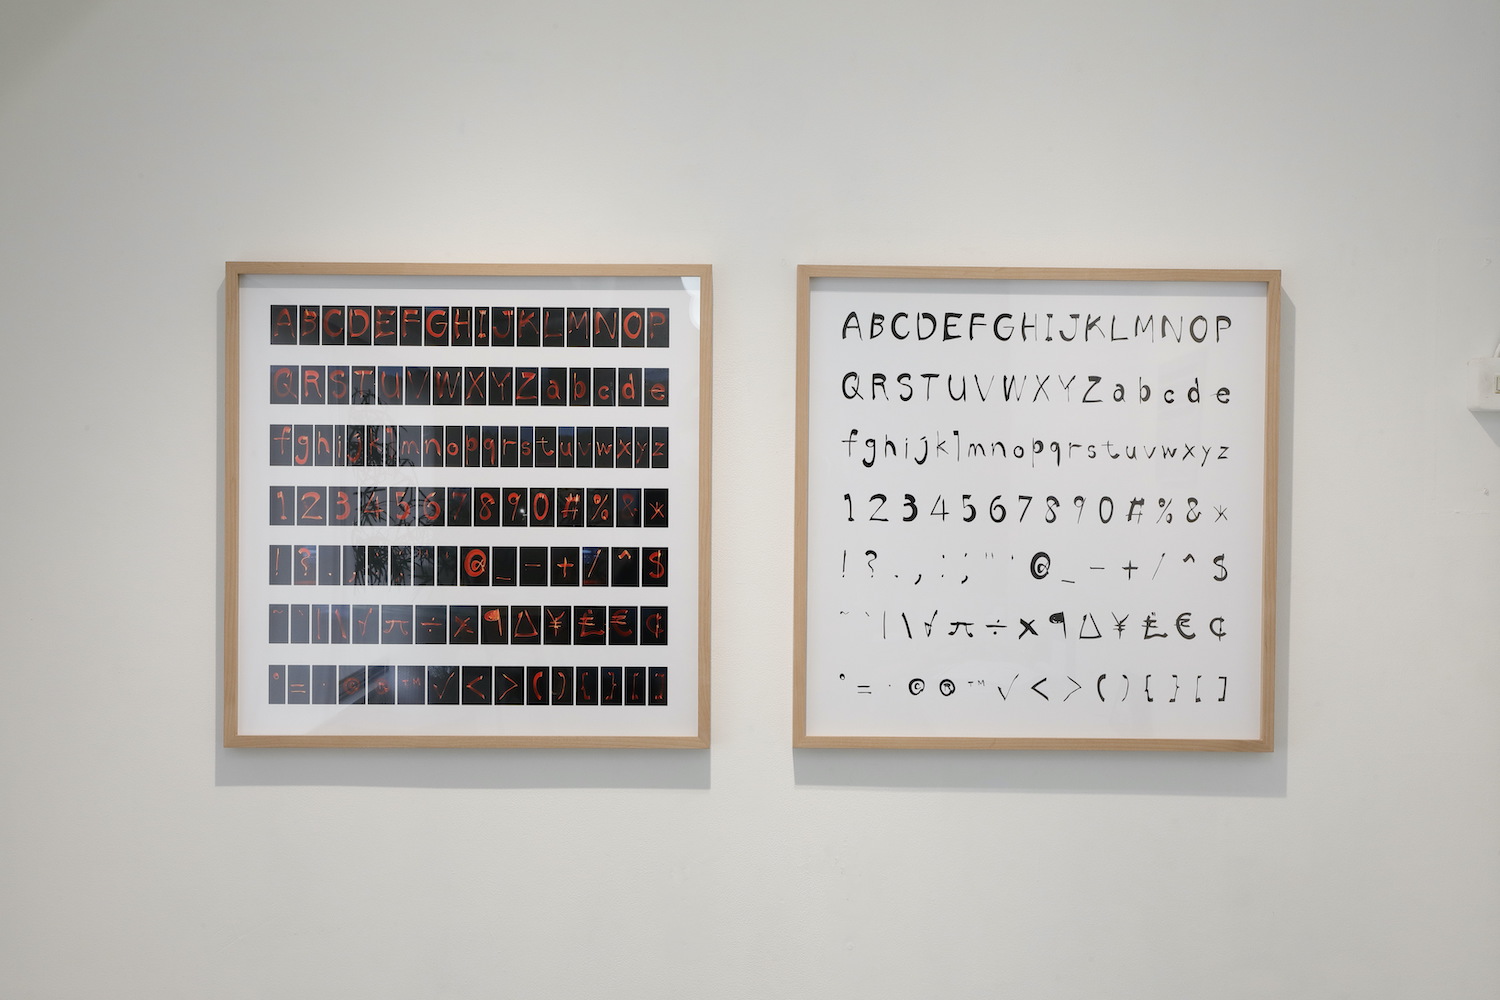 ABCDEFGHIJKLMNOP
QRSTUVWXYZabcde
fghijklmnopqrstuvwxyz
1234567890#%&*
!?.,:;"'@_-+/^$
~`|\√π÷×¶∆¥£€¢
°=·©®™√<>(){}[]
ABCDEFGHIJKLMNOP
QRSTUVWXYZabcde
fghijklmnopqrstuvwxyz
1234567890#%&*
!?.,:;"'@_-+/^$
~`|\√π÷×¶∆¥£€¢
°=·©®™√<>(){}[]